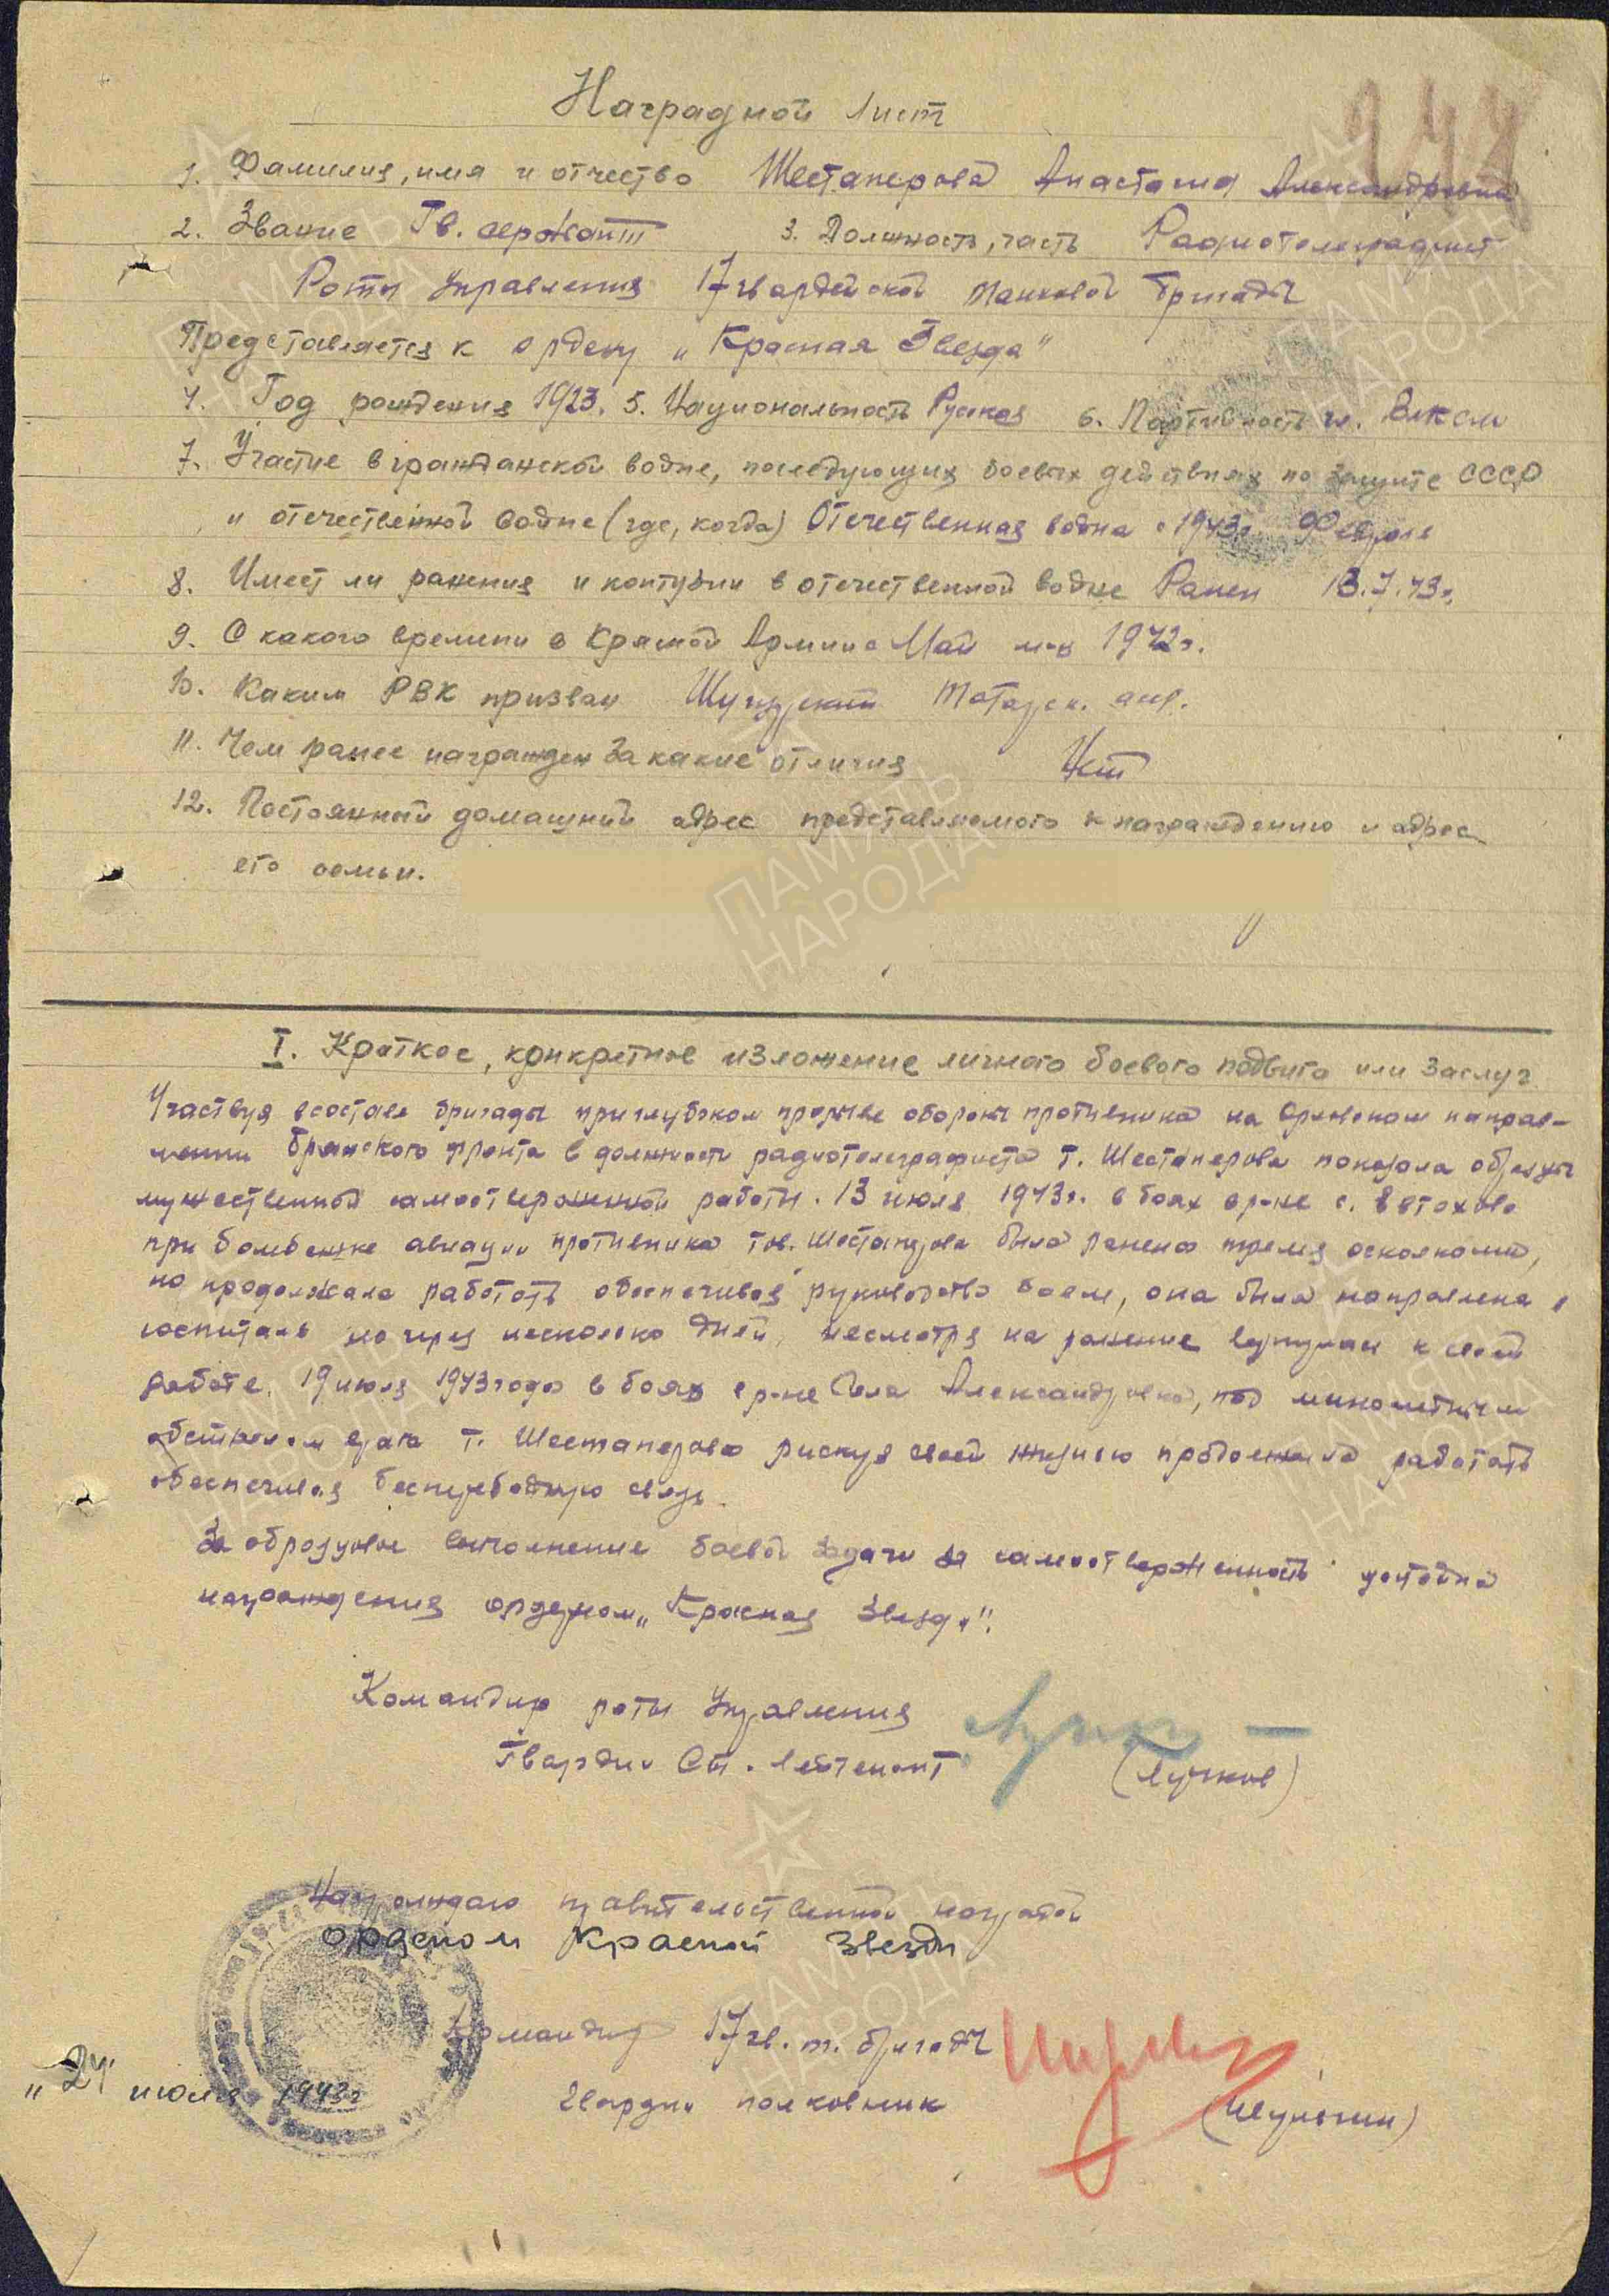 Наградной лист
1. Фамилия, имя и отчество Шестаперова Анастасия Александровна
2. Звание Гв. сержант 3. Должность, часть Радиотелеграфист
Роты Управления 17 гвардейской танковой бригады
Представляется к ордену „Красная Звезда"
4. Год рождения 1923. 5. Национальность Русская 6. Партийность чл. ВЛКСМ
7. Участие в гражданской войне, последующих боевых действиях по защите СССР
и отечественной войне (где, когда) Отечественная война с 1943г.
8. Имеет ли ранения и контузии в отечественной войне Ранен 13.7.43г.
9. С какого времени в Красной Армии с Май м-ц 1942г.
10. Каким РВК призван Шугурский Татарск.
11. Чем ранее награжден за какие отличия Нет
12. Постоянный домашний адрес представляемого к награждению и адрес
его семьи.
I. Краткое, конкретное изложение личного боевого подвига или заслуг.
Участвуя в составе бригады при глубоком прорыве обороны противника на Орловском направ-
лении Брянского фронта в должности радиотелеграфиста т. Шестаперова показала образцы
мужественной самоотверженной работы. 13 июля 1943г. в боях в р-не с.
при бомбежке авиации противника тов. Шестаперова была ранена тремя осколками,
но продолжала работать обеспечивая руководство боем, она была направлена в
госпиталь но через несколько дней, несмотря на ранение вернулась к своей
работе. 19 июля 1943 года в боях в р-не села Александровка, под минометным
обстрелом врага т. Шестаперова рискуя своей жизнью продолжала работать
обеспечивая бесперебойную связь.
За образцовое выполнение боевой задачи за самоотверженность достойна
награждения орденом „Красная Звезда".
Командир роты Управления
Гвардии Ст. Лейтенант (Лучков)
Награждаю правительственной наградой
орденом Красной Звезды
Командир 17 гв. т. бригады
„24" июля 1943г Гвардии полковник (Шульгин)
ПАМЯТЬ НАРОДА